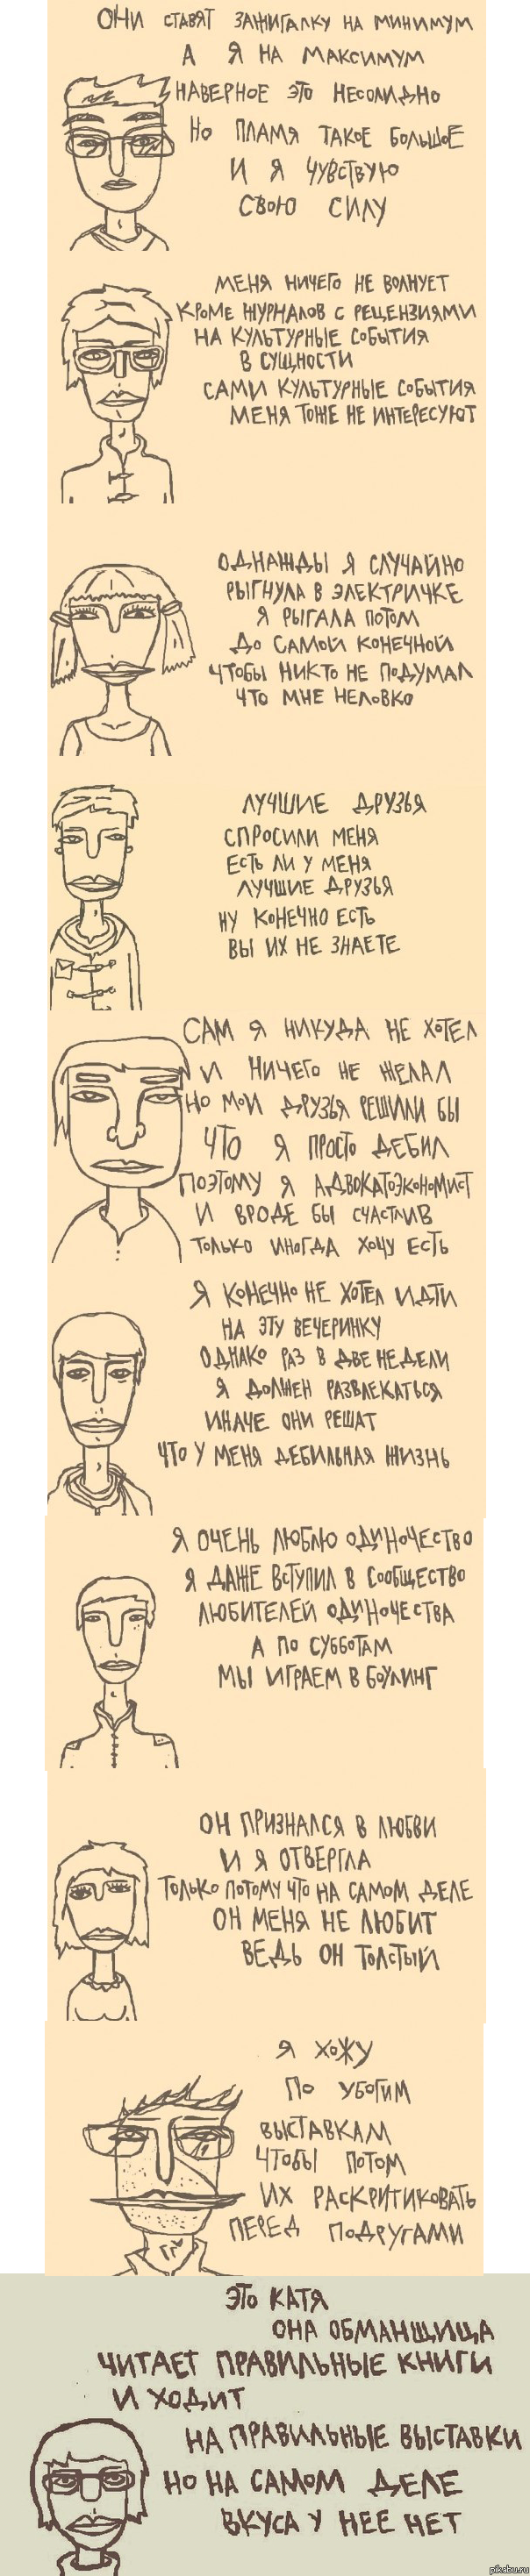 ОНИ СТАВЯТ ЗАЖИГАЛКУ НА МИНИМУМ
А Я НА МАКСИМУМ
НАВЕРНОЕ ЭТО НЕСОЛИДНО
НО ПЛАМЯ ТАКОЕ БОЛЬШОЕ
И Я ЧУВСТВУЮ
СВОЮ СИЛУ
МЕНЯ НИЧЕГО НЕ ВОЛНУЕТ
КРОМЕ ЖУРНАЛОВ С РЕЦЕНЗИЯМИ
НА КУЛЬТУРНЫЕ СОБЫТИЯ
В СУЩНОСТИ
САМИ КУЛЬТУРНЫЕ СОБЫТИЯ
МЕНЯ ТОЖЕ НЕ ИНТЕРЕСУЮТ
ОДНАЖДЫ Я СЛУЧАЙНО
РЫГНУЛА В ЭЛЕКТРИЧКЕ
Я РЫГАЛА ПОТОМ
ДО САМОЙ КОНЕЧНОЙ
ЧТОБЫ НИКТО НЕ ПОДУМАЛ
ЧТО МНЕ НЕЛОВКО
ЛУЧШИЕ ДРУЗЬЯ
СПРОСИЛИ МЕНЯ
ЕСТЬ ЛИ У МЕНЯ
ЛУЧШИЕ ДРУЗЬЯ
НУ КОНЕЧНО ЕСТЬ
ВЫ ИХ НЕ ЗНАЕТЕ
САМ Я НИКУДА НЕ ХОТЕЛ
И НИЧЕГО НЕ ЖЕЛАЛ
НО МОИ ДРУЗЬЯ РЕШИЛИ БЫ
ЧТО Я ПРОСТО ДЕБИЛ
ПОЭТОМУ Я АДВОКАТОЭКОНОМИСТ
И ВРОДЕ БЫ СЧАСТЛИВ
ТОЛЬКО ИНОГДА ХОЧУ ЕСТЬ
Я КОНЕЧНО НЕ ХОТЕЛ ИДТИ
НА ЭТУ ВЕЧЕРИНКУ
ОДНАКО РАЗ В ДВЕ НЕДЕЛИ
Я ДОЛЖЕН РАЗВЛЕКАТЬСЯ
ИНАЧЕ ОНИ РЕШАТ
ЧТО У МЕНЯ ДЕБИЛЬНАЯ ЖИЗНЬ
Я ОЧЕНЬ ЛЮБЛЮ ОДИНОЧЕСТВО
Я ДАЖЕ ВСТУПИЛ В СООБЩЕСТВО
ЛЮБИТЕЛЕЙ ОДИНОЧЕСТВА
А ПО СУББОТАМ
МЫ ИГРАЕМ В БОУЛИНГ
ОН ПРИЗНАЛСЯ В ЛЮБВИ
И Я ОТВЕРГЛА
ТОЛЬКО ПОТОМУ ЧТО НА САМОМ ДЕЛЕ
ОН МЕНЯ НЕ ЛЮБИТ
ВЕДЬ ОН ТОЛСТЫЙ
Я ХОЖУ
ПО УБОГИМ
ВЫСТАВКАМ
ЧТОБЫ ПОТОМ
ИХ РАСКРИТИКОВАТЬ
ПЕРЕД ПОДРУГАМИ
ЭТО КАТЯ
ОНА ОБМАНЩИЦА
ЧИТАЕТ ПРАВИЛЬНЫЕ КНИГИ
И ХОДИТ
НА ПРАВИЛЬНЫЕ ВЫСТАВКИ
НО НА САМОМ ДЕЛЕ
ВКУСА У НЕЕ НЕТ
pikabu.ru